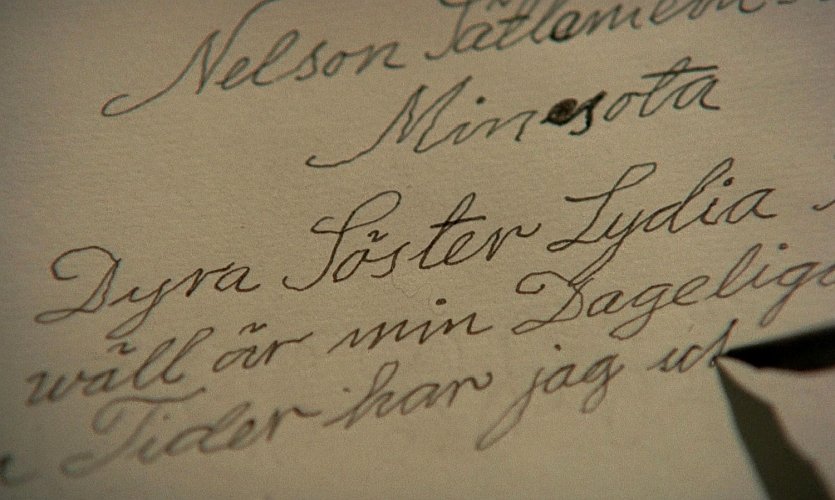 Nelson Sätlement
Minesota
Dyra Söster Lydia
wäll är min Dagelig
Tider har jag ut